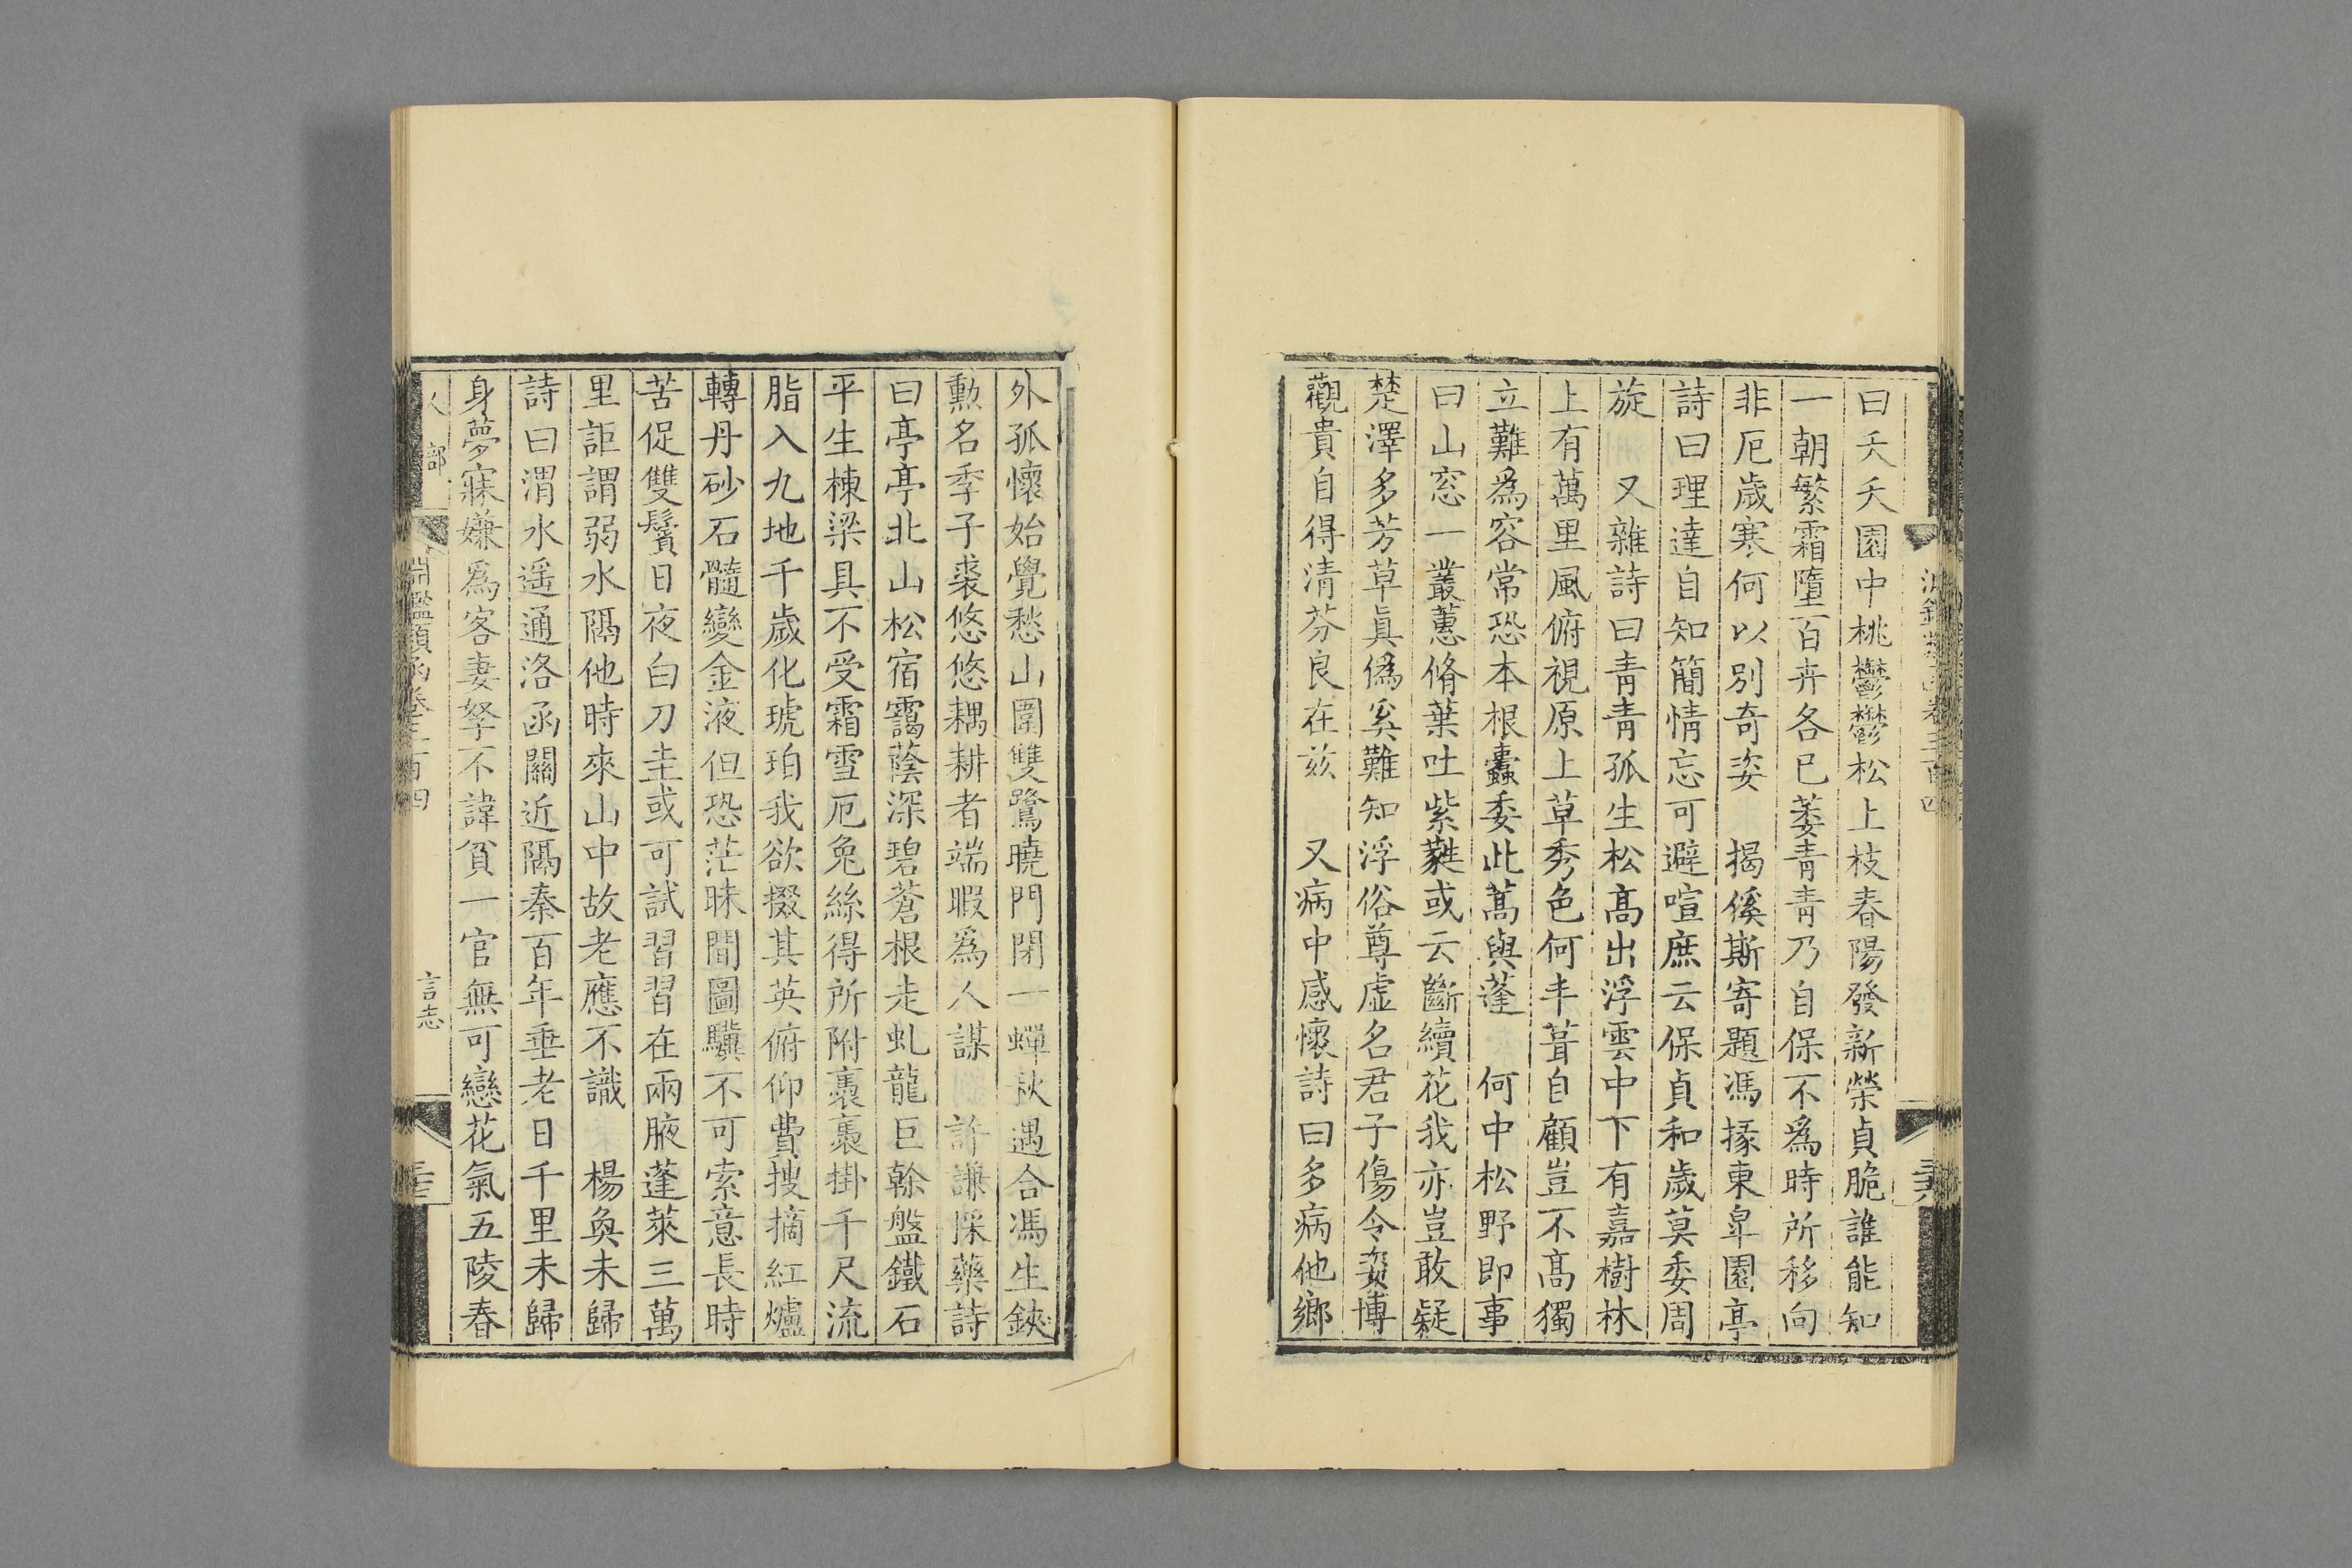 曰夭夭園中桃鬱鬱松上枝春陽發新榮貞脆誰能知
一朝繁霜墮百卉各已萎青青乃自保不爲時所移向
非厄歲寒何以別奇姿　揭傒斯寄題馮掾東皐園亭
詩曰理達自知簡情忘可避喧庶云保貞和歲莫委周
旋　又雜詩曰青青孤生松高出浮雲中下有嘉樹林
上有萬里風俯視原上草秀色何丰葺自顧豈不高獨
立難爲容常恐本根蠹委此蒿與蓬　何中松野即事
曰山窓一叢蕙脩葉吐紫蕤或云斷續花我亦豈敢疑
楚澤多芳草眞僞奚難知浮俗尊虛名君子傷令姿博
觀貴自得清芬良在茲　又病中感懷詩曰多病他鄉
外孤懷始覺愁山圍雙鷺曉門閉一蟬秋遇合馮生鋏
勲名季子裘悠悠耦耕者端暇爲人謀　許謙採藥詩
曰亭亭北山松宿靄蔭深碧蒼根走虬龍巨榦盤鐵石
平生棟梁具不受霜雪厄兔絲得所附裹裹掛千尺流
脂入九地千歲化琥珀我欲掇其英俯仰費搜摘紅爐
轉丹砂石髓變金液但恐茫昧間圖驥不可索意長時
苦促雙鬢日夜白刀圭或可試習習在兩腋蓬萊三萬
里詎謂弱水隔他時來山中故老應不識　楊奐未歸
詩曰渭水遥通洛函關近隔秦百年垂老日千里未歸
身夢寐嫌爲客妻孥不諱貧一官無可戀花氣五陵春
人部　淵鑑類函卷三百四　言志